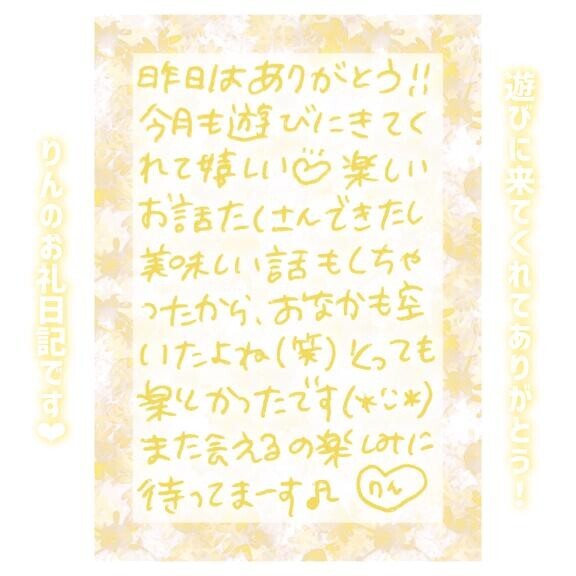 遊びに来てくれてありがとう！
昨日はありがとう!!
今月も遊びにきてく
れて嬉しい♡ 楽しい
お話たくさんできたし
美味しい話もしちゃ
ったから、おなかも空
いたよね(笑)とっても
楽しかったです(*¨*)
また会えるの楽しみに
待ってまーす♫ りん
りんのお礼日記です❤